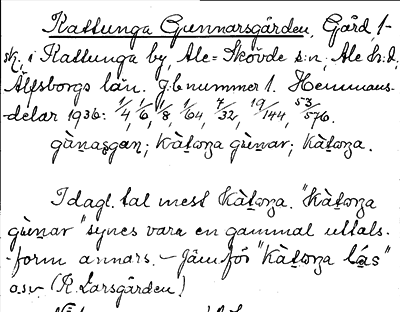 Kattunga Gunnarsgården, Gård, 1-
sk. i Kattunga by, Ale-Skövde s:n, Ale h:d,
Älfsborgs län. J:b nummer 1. Hemmans-
-delar 1936: 1/4, 1/6, 1/8, 1/64, 7/32, 19/144, 53/576.
gùnasgan; kàtoŋa gùnar; kàtoŋa.
I dagl. tal mest kàtoŋa. "kàtoŋa
gùnar" synes vara en gammal uttals-
-form annars. - Jämför "kàtoŋa lás"
osv. (K. Larsgården)